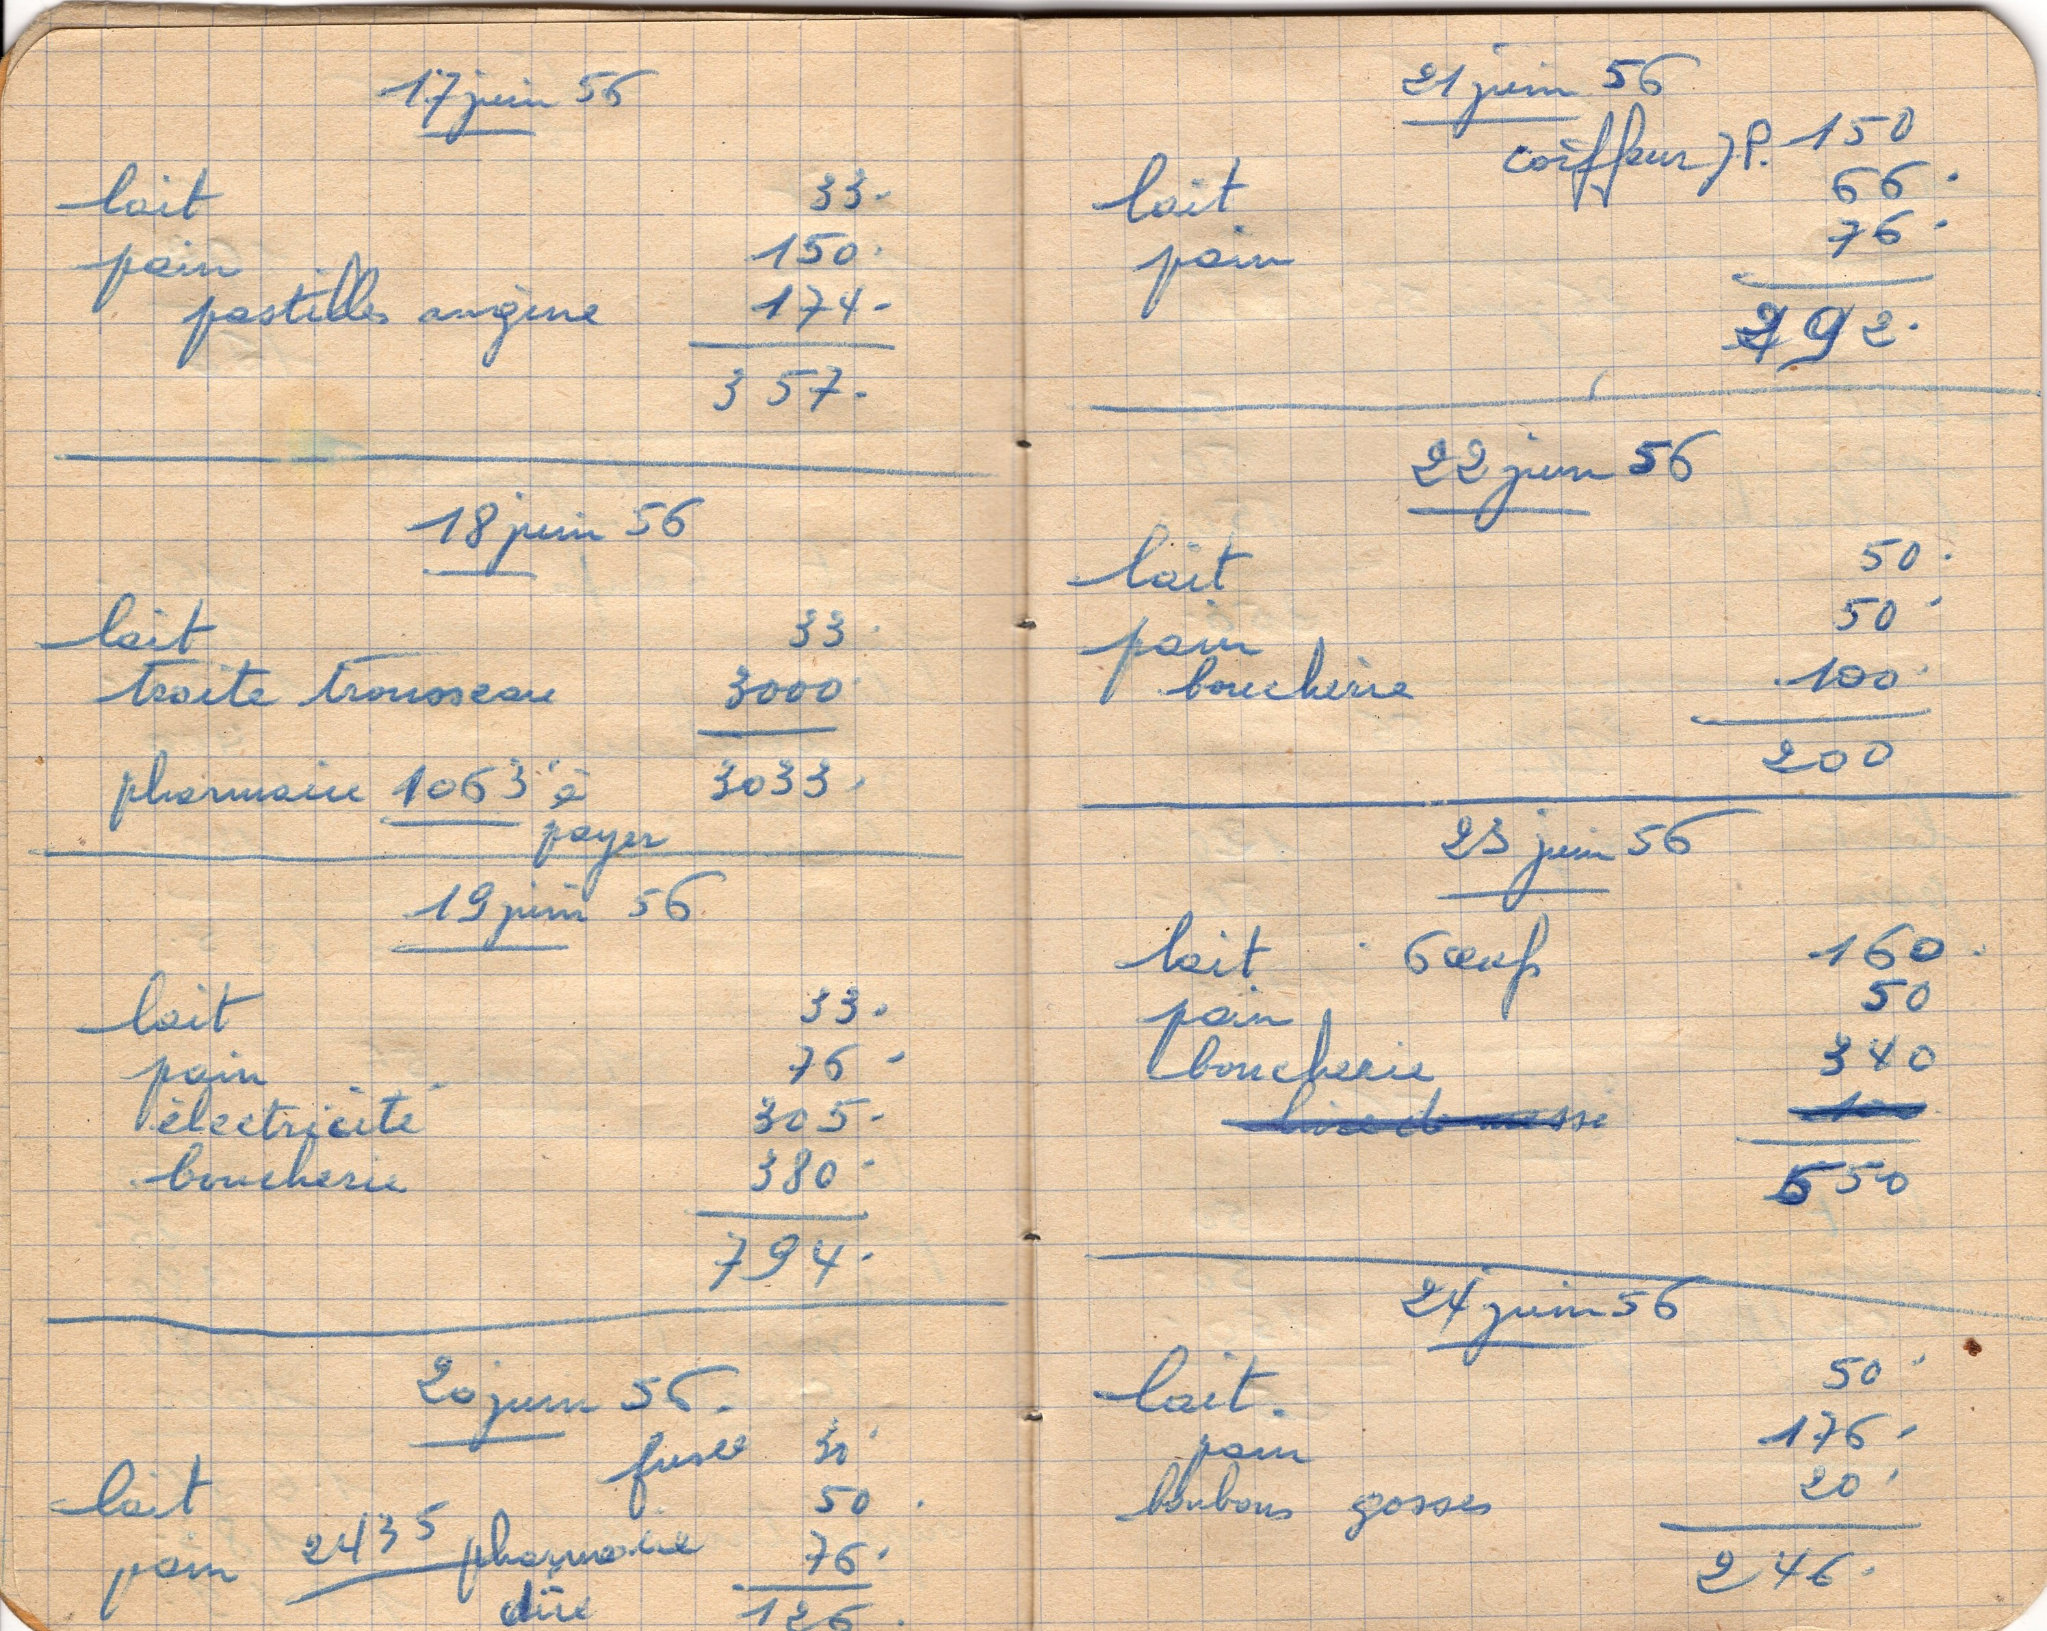 17 juin 56
lait 33.
pain 150.
pastilles angine 174.
357.
18 juin 56
lait 33.
traite trousseau 3000
3033.
pharmacie 1063 à
payer
19 juin 56
lait 33.
pain 76.
électricité 305.
boucherie 380.
794.
20 juin 56.
fusee 30
lait 50.
pain 2435 pharmacie 76.
dûe 126.
21 juin 56
coiffeur J.P. 150
lait 66.
pain 76.
292.
22 juin 56
lait 50.
pain 50.
boucherie 100.
200
23 juin 56
lait 6 œufs 160.
pain 50
boucherie 340
100
550
24 juin 56
lait. 50.
pain 176.
bonbons gosses 20.
246.